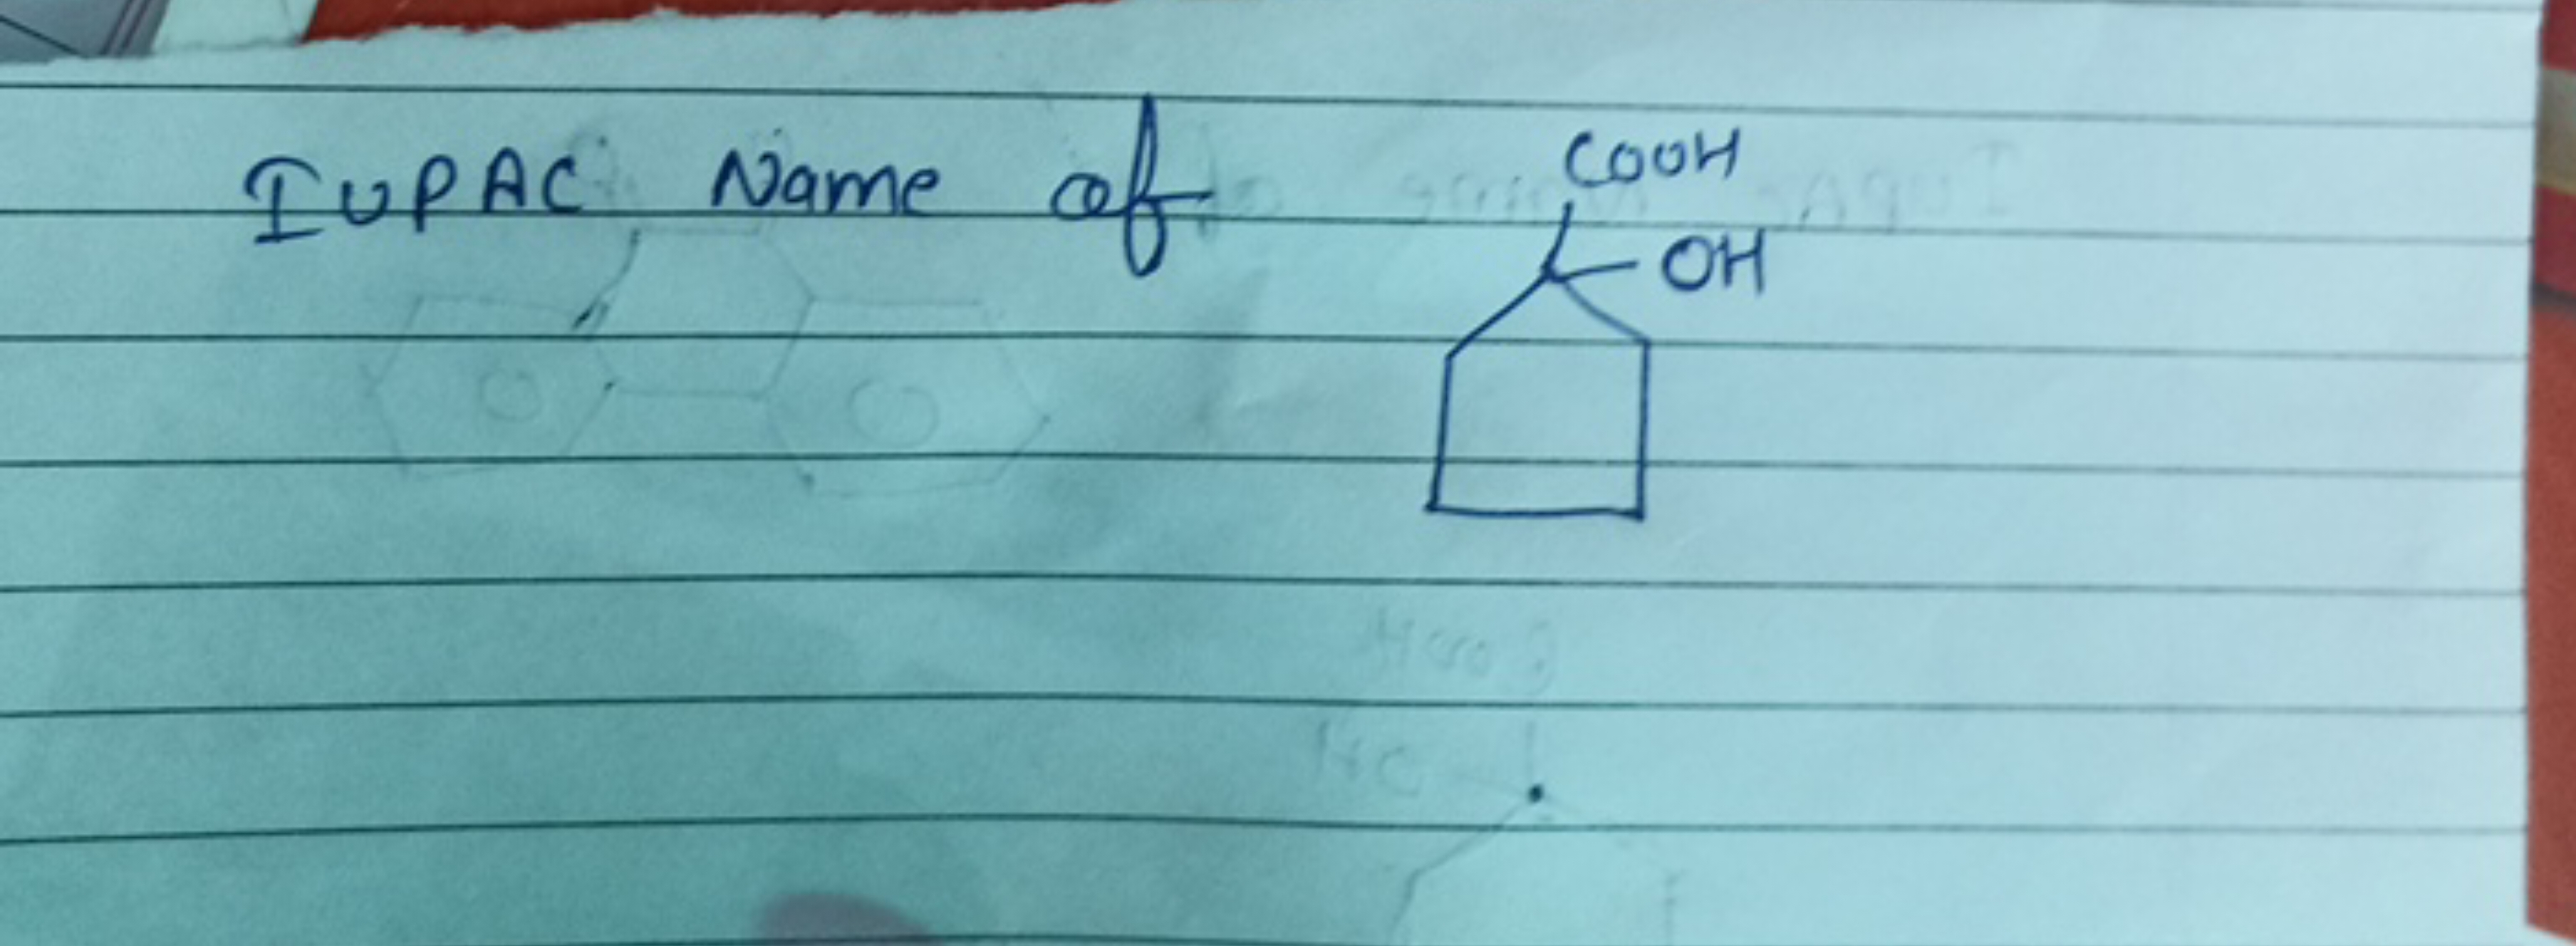 IUPAC Name of
COOH
OH